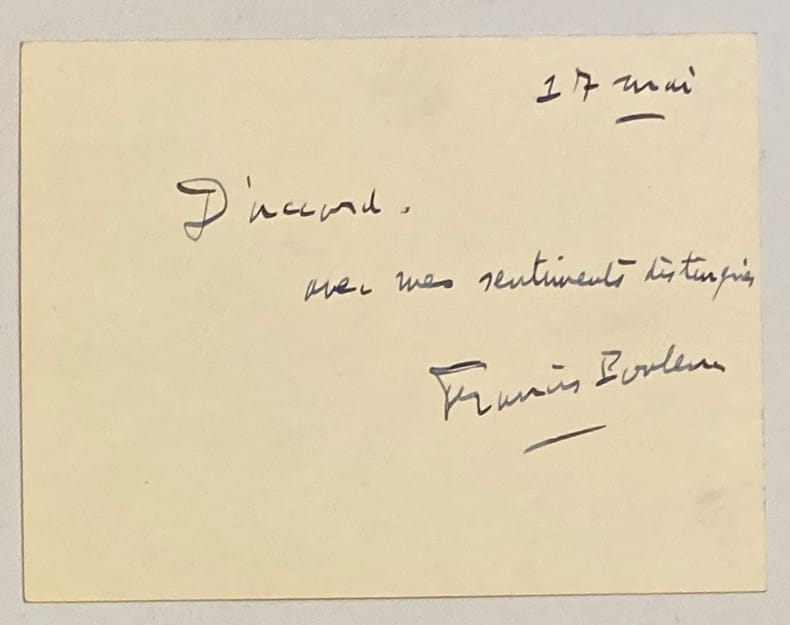 17 mai
D'accord.
avec mes sentiments distingués
Francis